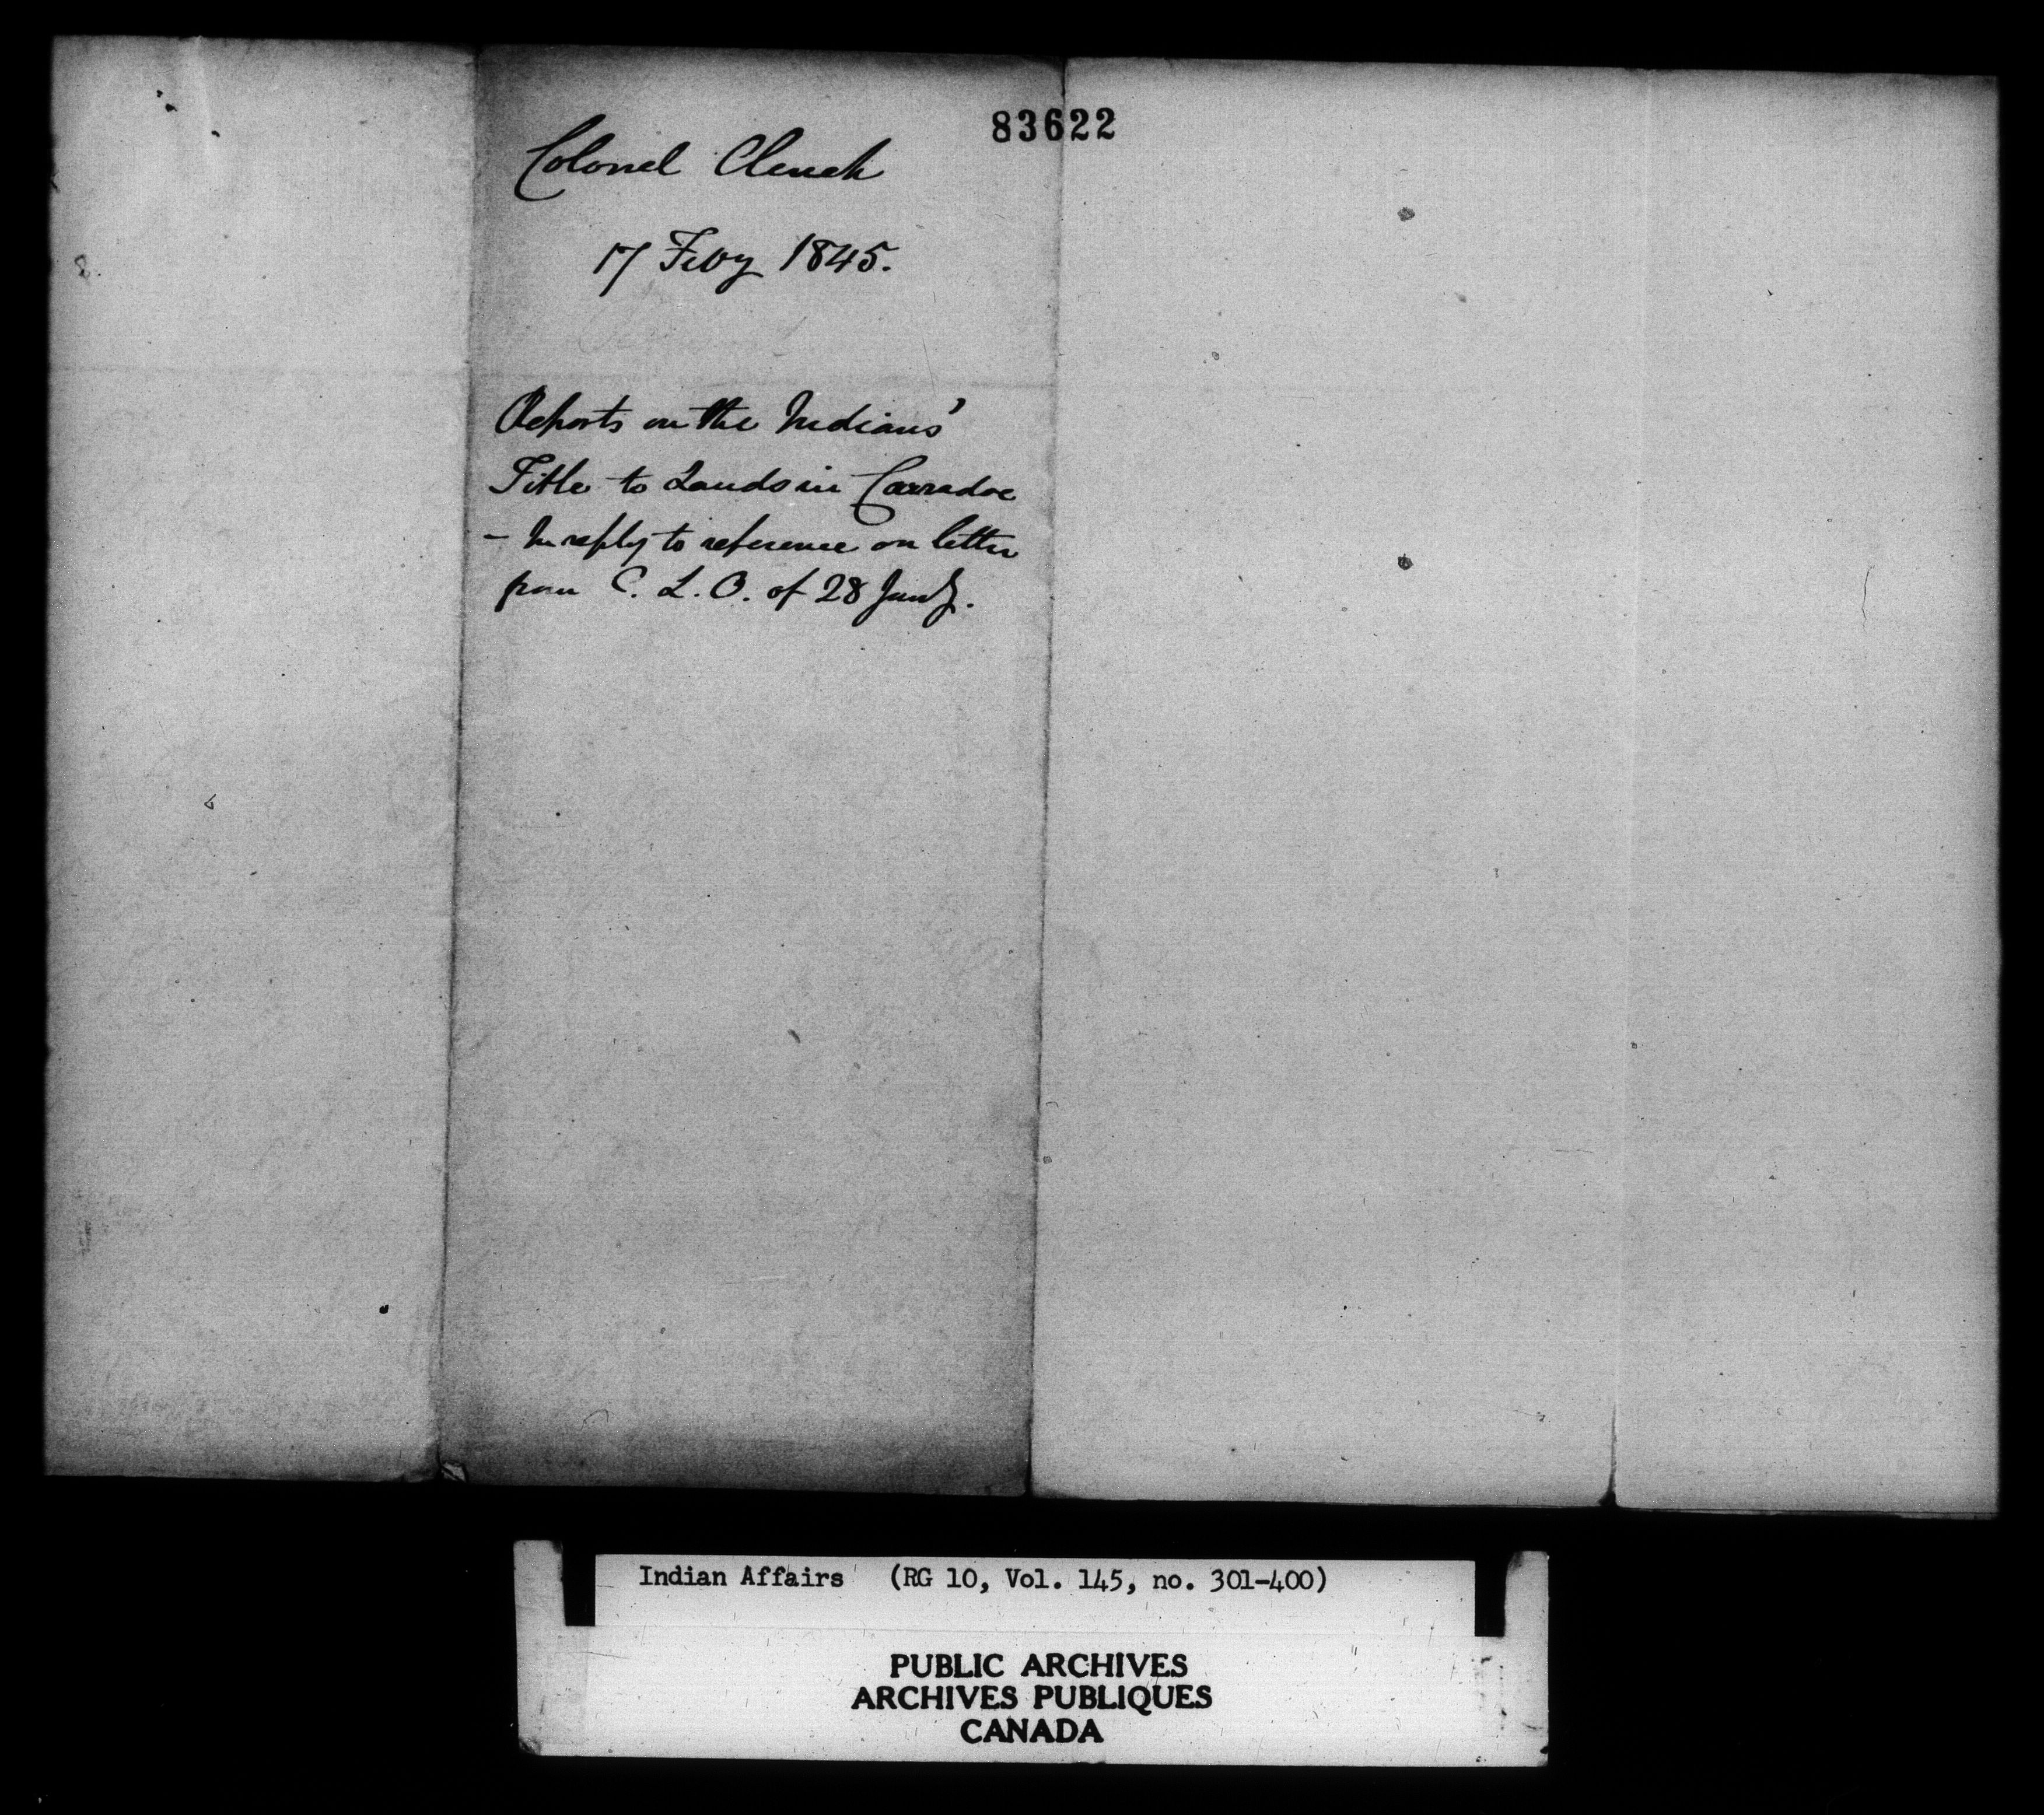 83622
Colonel Clench
17 Feby 1845.
Reports on the Indians'
Title to Lands in Carradoc
- In reply to reference on letter
from C. L. O. of 28 Jany.
Indian Affairs (RG 10, Vol. 145, no. 301-400)
PUBLIC ARCHIVES
ARCHIVES PUBLIQUES
CANADA